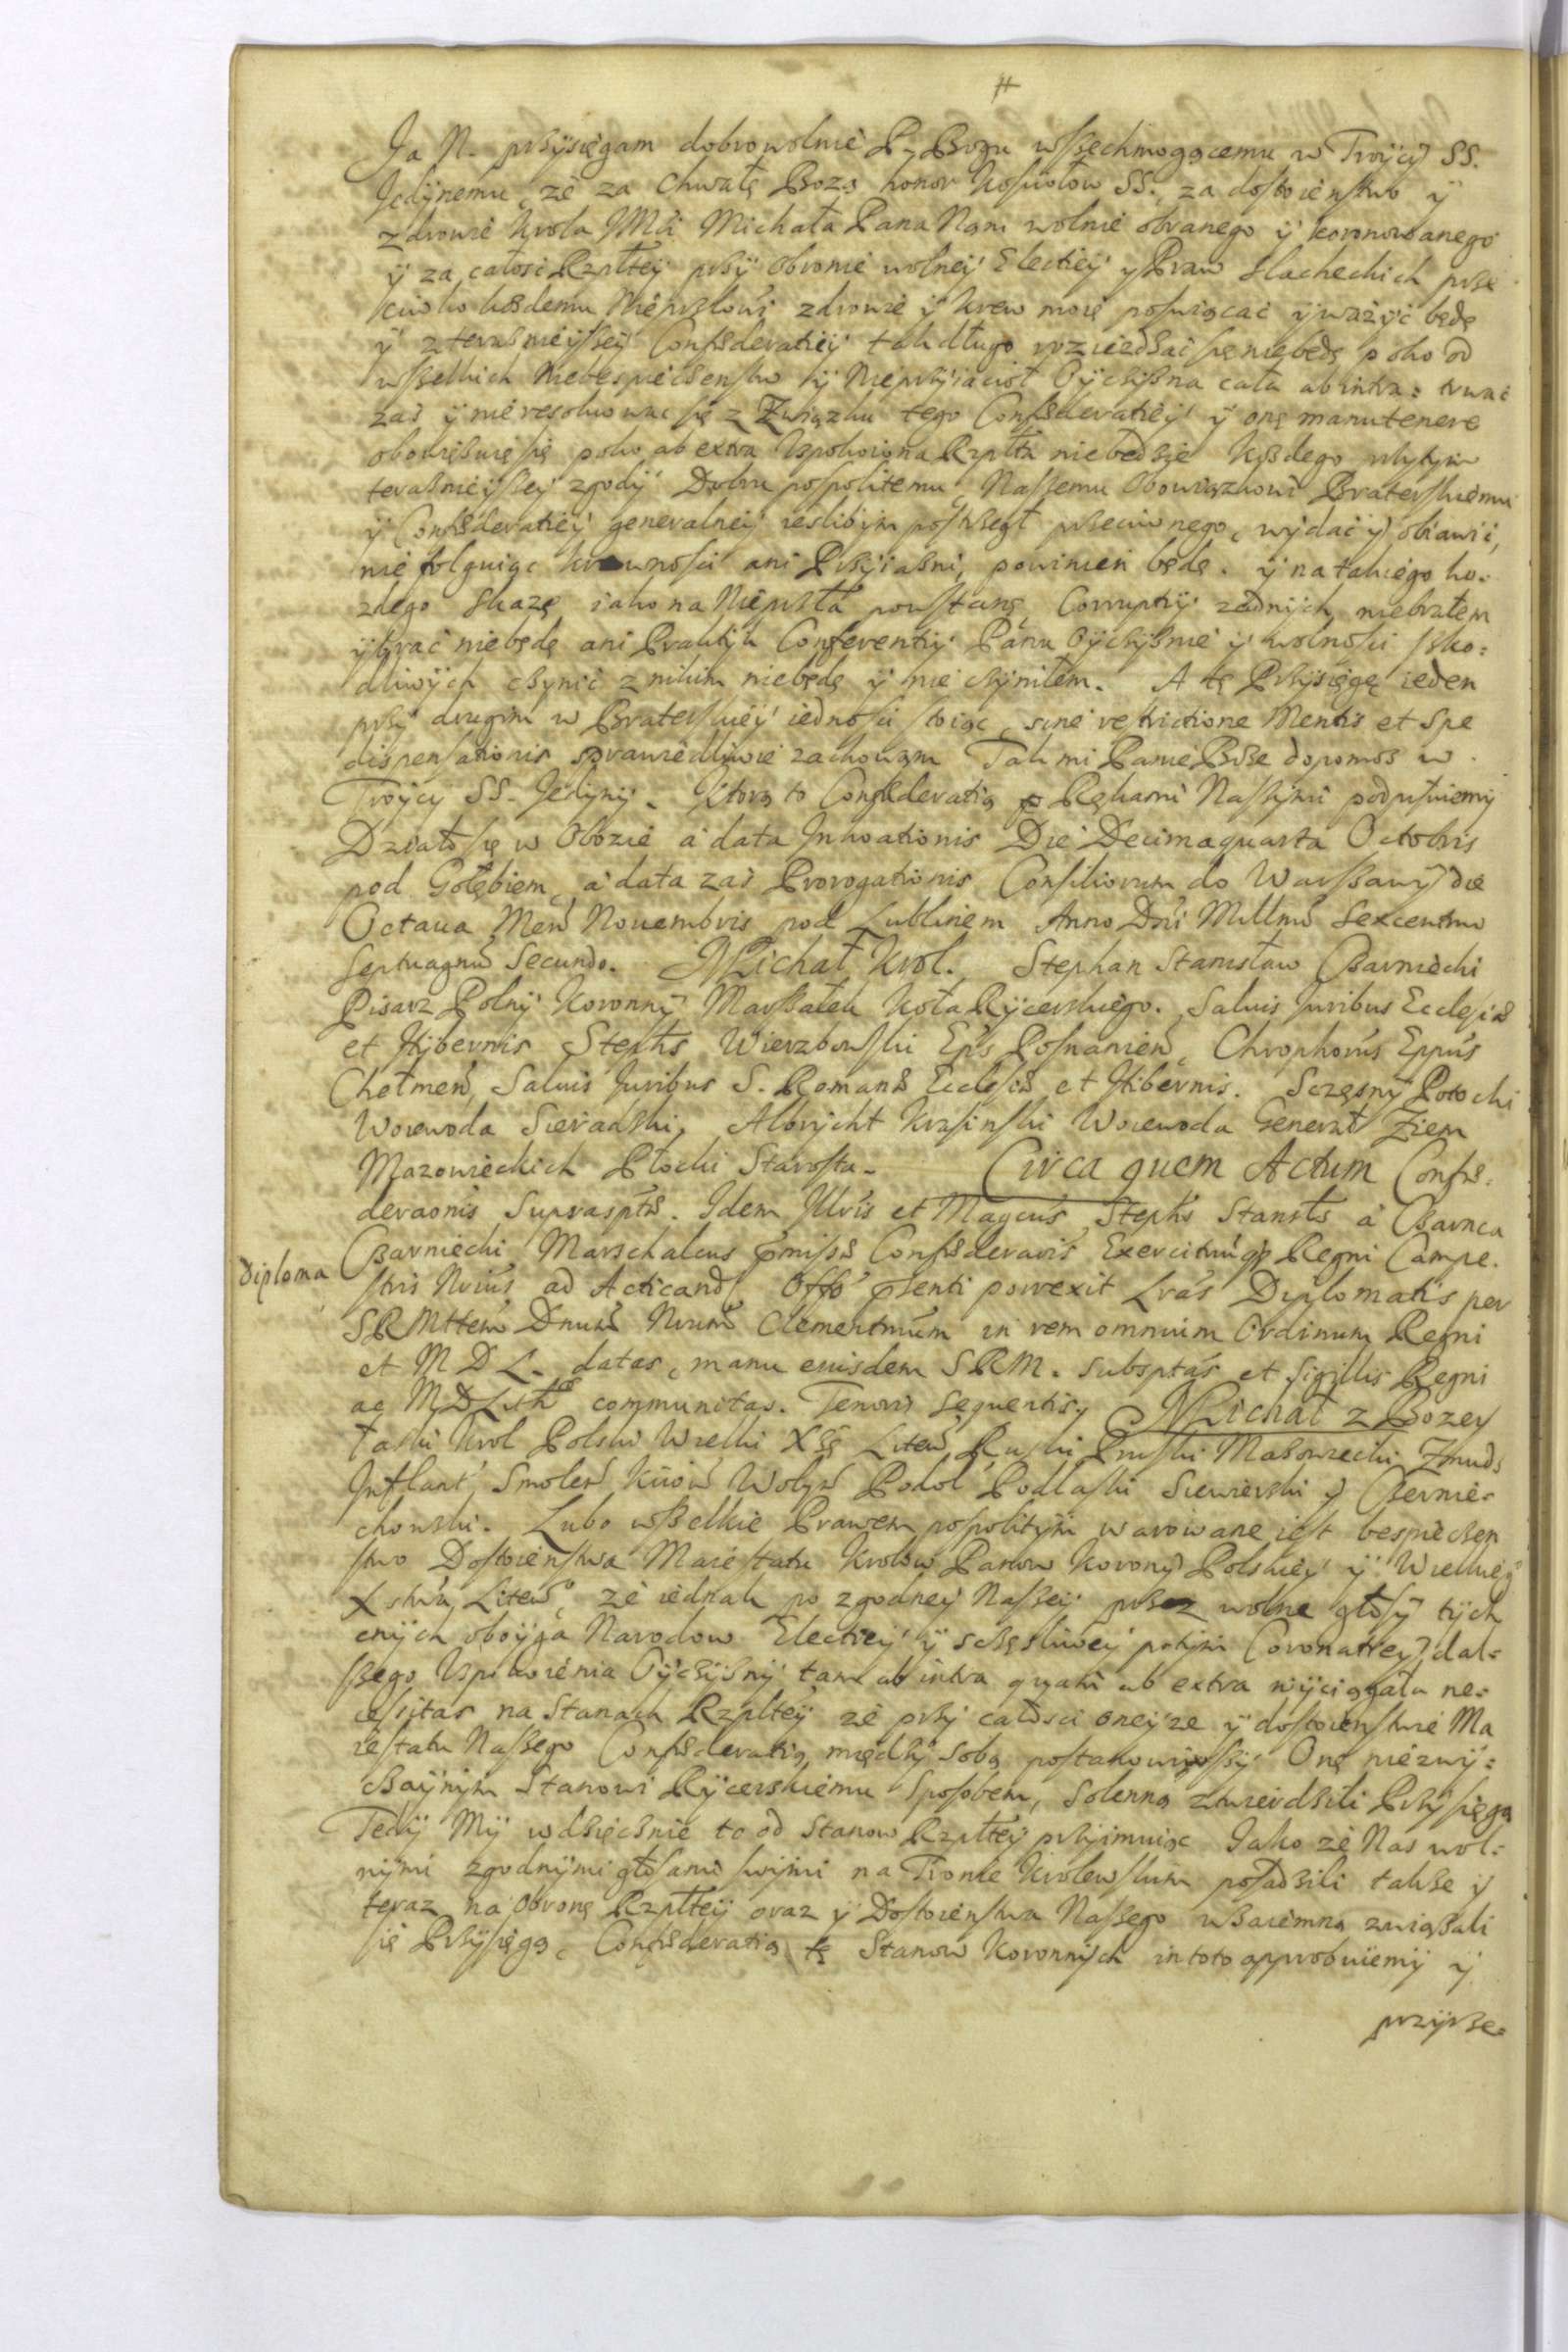 Ja N. przysięgam dobrowolnie P. Bogu wszechmogącemu w Troycy SS.
Jedynemu, że za Chwałę Bozą honor Kosciołow SS., za dostoienstwo y
zdrowie Krola JMći Michała Pana Nam wolnie obranego y koronowanego
y za całosć Rzpltey przy Obronie wolney Electiey y Praw slacheckich prze
ciwko kozdemu Nieprzlowi zdrowie y krew moię poswiącać y wazyć będę
y z terazniejszey Confæderatiey tak długo rozieżdzać się niebędę poko od
wszelkich Niebespieczenstw y Nieprzyiacioł Oyczyzna cała ab intra: trwać
zaś y nieresolwować się z Związku tego Confæderatiey y onę manutenere
obowięzuię się poko ab extra Uspokoiona Rzplta niebędzie Kozdego
terazniejszey zgody Dobru pospolitemu, Naszemu Obowiązkowi Braterskiemu
y Confæderatiey generalney iesliбym postrzegł przeciwnego, wydać y obiawić,
nie folguiąc krewnosci ani Przyiazni, powinien będę. y na takiego ko-
zdego Skazę iako na Nieprzlā powstanę Corruptiy zadnych, niebrałem
y brać niebędę ani Praktyk Conferentiy Panu Oyczyznie y wolnosci szko-
dliwych czynić z nikim niebędę y nie czyniłem. A tę Przysięgę ieden
przy drugim w Braterskiey iednosci stoiąc, sine restrictione Mentis et Spe
dispensationis sprawiedliwie zachowam Tak mi Panie Boze dopomoz w
Troycy SS. Jedyny. Ktorą to Confæderatią Rękami Naszymi podpisuiemy
Działo się w Obozie a data Inhoationis Die Decimaquarta Octobris
pod Gołębiem, a data zaś Prorogationis Consiliorum do Warszawy die
Octaua Men Nouembris pod Lublinem Anno Dni Millmo Sexcentmo
Septuagmo Secundo. Michał Krol. Stephan Stanisław Czarniecki
Pisarz Polny Koronny Marszałek Koła Rycerskiego. Saluis Juribus Ecclesiæ
et Hybernis Stephs Wierzbowski Eps Posnanien, Chrophorus Eppus
Chełmen, Saluis Juribus S. Romanæ Ecclesiæ et Hibernis. Sczęsny Potocki
Woiewoda Sieradzki, Albrycht Krasinski Woiewoda Generał Ziem
Mazowieckich Płocki Starosta. Circa quem Actum Confæ-
deraonis Suprasptæ. Idem Illris et Magcus Stephs Stansls a Czarnca
Diploma Czarniecki Marschalcus pmissæ Confæderaōis Exercituūq Regni Campe-
stris Nrius, ad Acticand Offō psenti porrexit Lrās Diplomatis per
SRMttem Dnum Nrum Clementmum in rem omnium Ordinum Regni
et M D L. datas, manu eiusdem SRM. subsptas et sigillis Regni
ac MDLith communitas. Tenoris sequentis. Michał z Bozey
łaski Krol Polski Wielki Xże Litew Ruski Pruski Mazowiecki Zmudz
Inflant, Smolen Kiiow Wołyn Podol Podlaski Siewierski y Czernie-
chowski. Lubo wszelkie Prawem pospolitym warowane iest bespieczen
stwo Dostoienstwa Maiestatu Krolow Panow Korony Polskiey y Wielkieg
Xstwa Litew, że iednak po zgodney Naszey przez wolne głosy tych
cnych oboyga Narodow Electiey y sczęsliwey potym Coronatiey, dal-
szego Uspokoienia Oyczyzny tam ab intra quam ab extra wyciągała ne-
cessitas na Stanach Rzpltey że przy całosci oneyze y dostoienstwie Ma
iestatu Naszego Confæderatią, między Sobą postanowiwszy Onę niezwy-
czaynym Stanowi Rycerskiemu Sposobem, Solenną ztwierdzili Przysięgą
Tedy My wdzięcznie to od Stanow Rzpltey przyimuiąc Jako że Nas wol-
nymi zgodnymi głosami swymi na Tronie Krolewskim posadzili takze y
teraz na Obronę Rzpltey oraz y Dostoienstwa Naszego wzaiemną związali
się Przysięgą, Confæderatią tę Stanow Koronnych in toto approbuiemy y
przyrze-